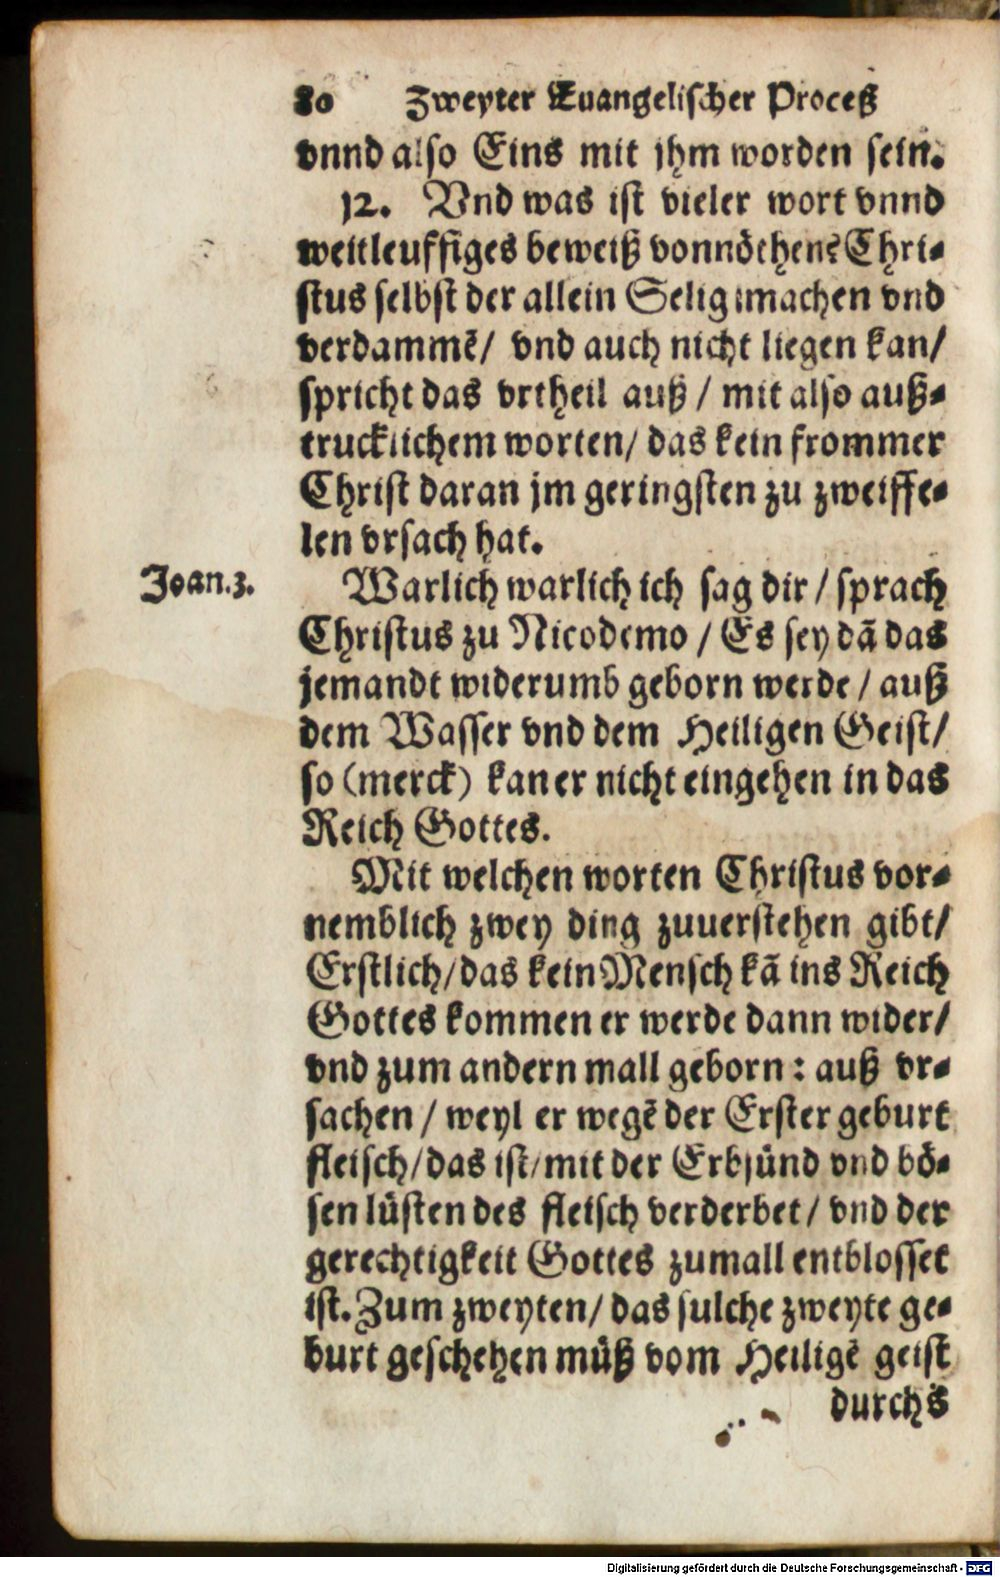 80 Zweyter Euangelischer Proceß
vnnd also Eins mit jhm worden sein.
12. Vnd was ist vieler wort vnnd
weitleuffiges beweiß vonnöthen? Chri-
stus selbst der allein Selig machen vnd
verdammē/ vnd auch nicht liegen kan/
spricht das vrtheil auß / mit also auß-
trucklichem worten/ das kein frommer
Christ daran jm geringsten zu zweiffe-
len vrsach hat.
Joan.3.
Warlich warlich ich sag dir / sprach
Christus zu Nicodemo / Es sey dā das
jemandt widerumb geborn werde / auß
dem Wasser vnd dem Heiligen Geist/
so (merck) kan er nicht eingehen in das
Reich Gottes.
Mit welchen worten Christus vor-
nemblich zwey ding zuuerstehen gibt/
Erstlich/ das kein Mensch kā ins Reich
Gottes kommen er werde dann wider/
vnd zum andern mall geborn : auß vr-
sachen / weyl er wegē der Erster geburt
fleisch/ das ist/ mit der Erbsünd vnd bö-
sen lüsten des fleisch verderbet/ vnd der
gerechtigkeit Gottes zumall entblosset
ist. Zum zweyten/ das sulche zweyte ge-
burt geschehen müß vom Heiligē geist
durchs
Digitalisierung gefördert durch die Deutsche Forschungsgemeinschaft - DFG